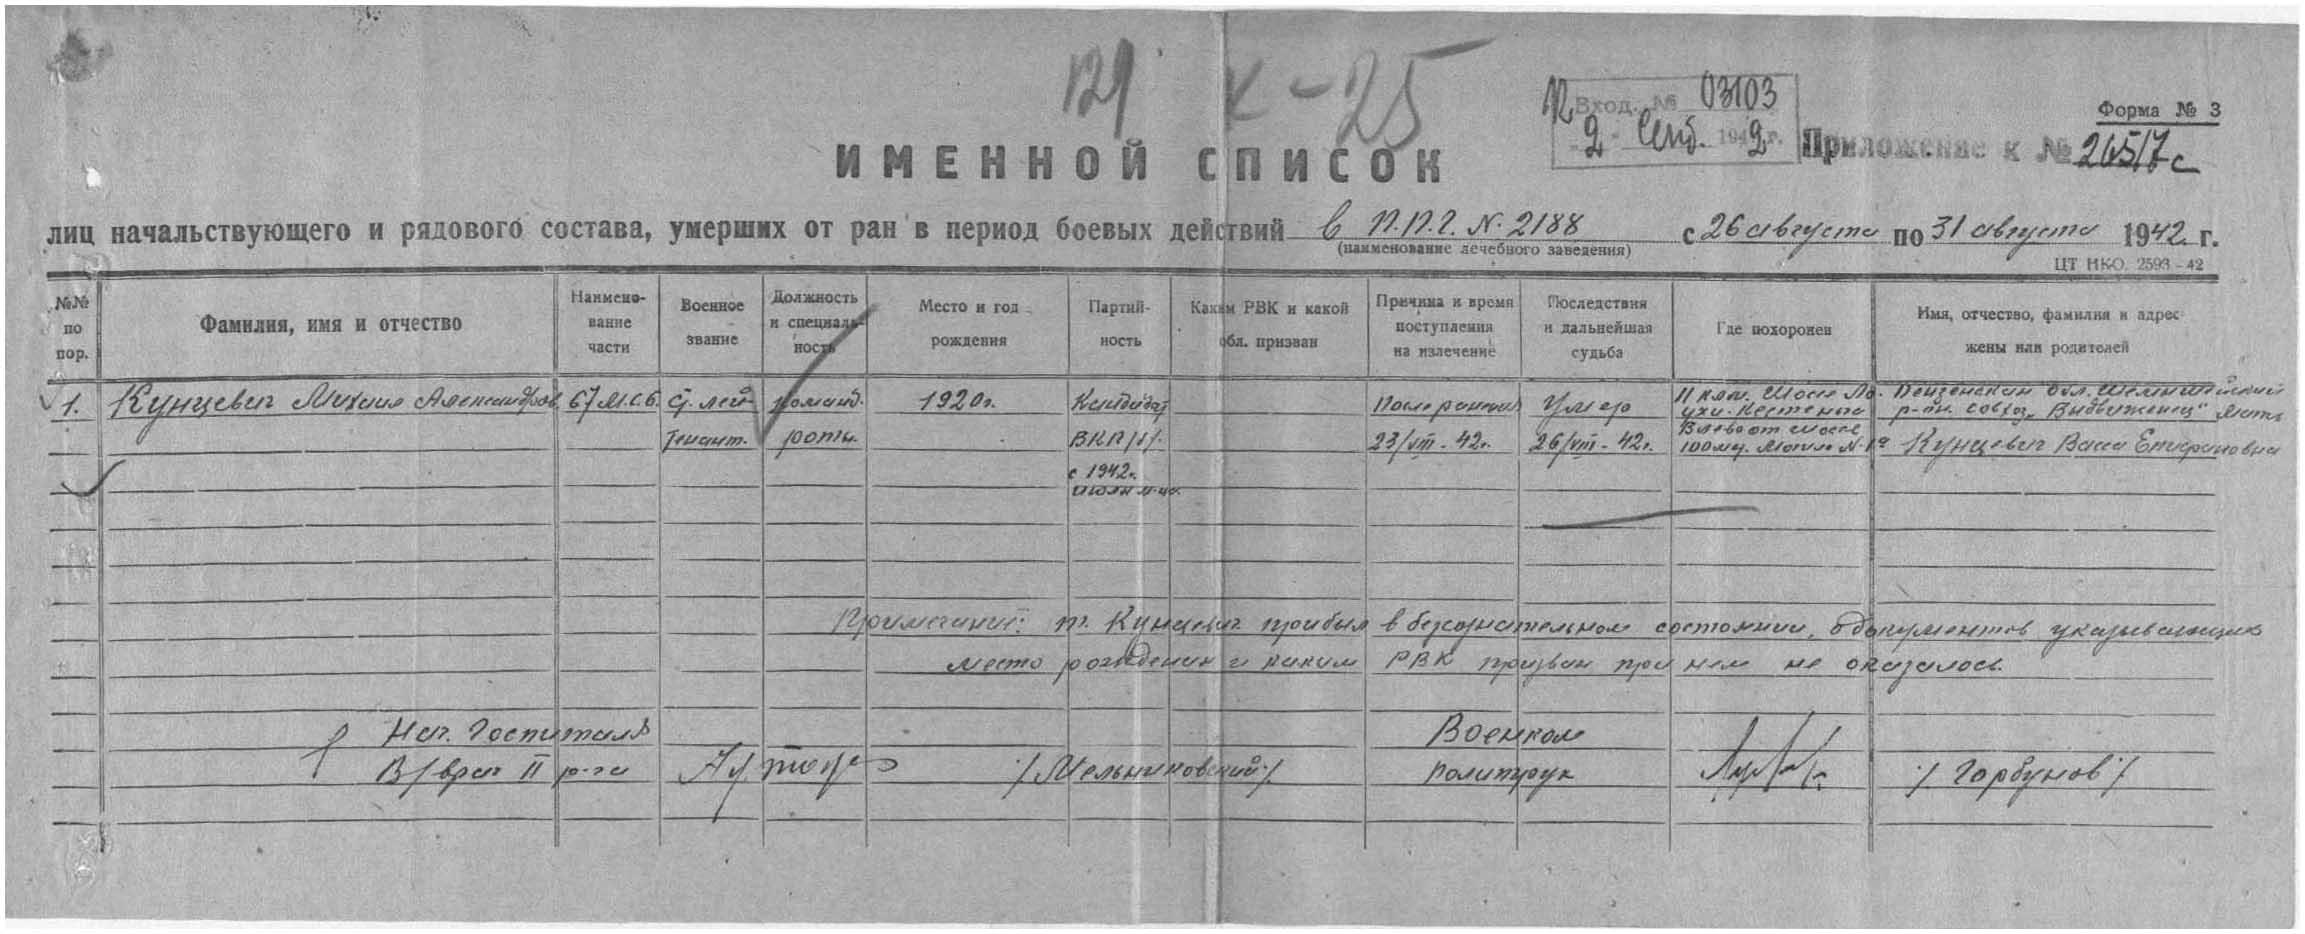 129 К-25
Вход. № 03103
2 - Сент. 1942 г.
Форма № 3
Приложение к № 265/7с
ИМЕННОЙ СПИСОК
лиц начальствующего и рядового состава, умерших от ран в период боевых действий в П.П.Г. N. 2188 с 26 августа по 31 августа 1942 г.
(наименование лечебного заведения)
ЦТ НКО. 2593-42
№№ по пор.
Фамилия, имя и отчество
Наименование части
Военное звание
Должность и специальность
Место и год рождения
Партийность
Каким РВК и какой обл. призван
Причина и время поступления на излечение
Последствия и дальнейшая судьба
Где похоронен
Имя, отчество, фамилия и адрес жены или родителей
1. Кунцевич Михаил Александров. 67 М.С.Б. Ст. лей- команд. 1920 г. Кандидат После ранения Умер 11 клм. Шоссе Ло- Пензенская обл. Шемышейский
ухи-Кестеньга р-он. совхоз "Выдвиженец" Мать
тенант. роты. ВКП/б/. 23/VIII-42г. 26/VIII-42г. Влево от шоссе
100 мт. Могила N-1а Кунцевич Васа Епифановна
с 1942г.
июня м-ца.
Примечание: т. Кунцевич прибыл в безсознательном состоянии, документов указывающих
место рождения и каким РВК призван при нем не оказалось.
Нач. Госпиталя Военком
В/врач II р-га /Мельниковский/ политрук /Горбунов/